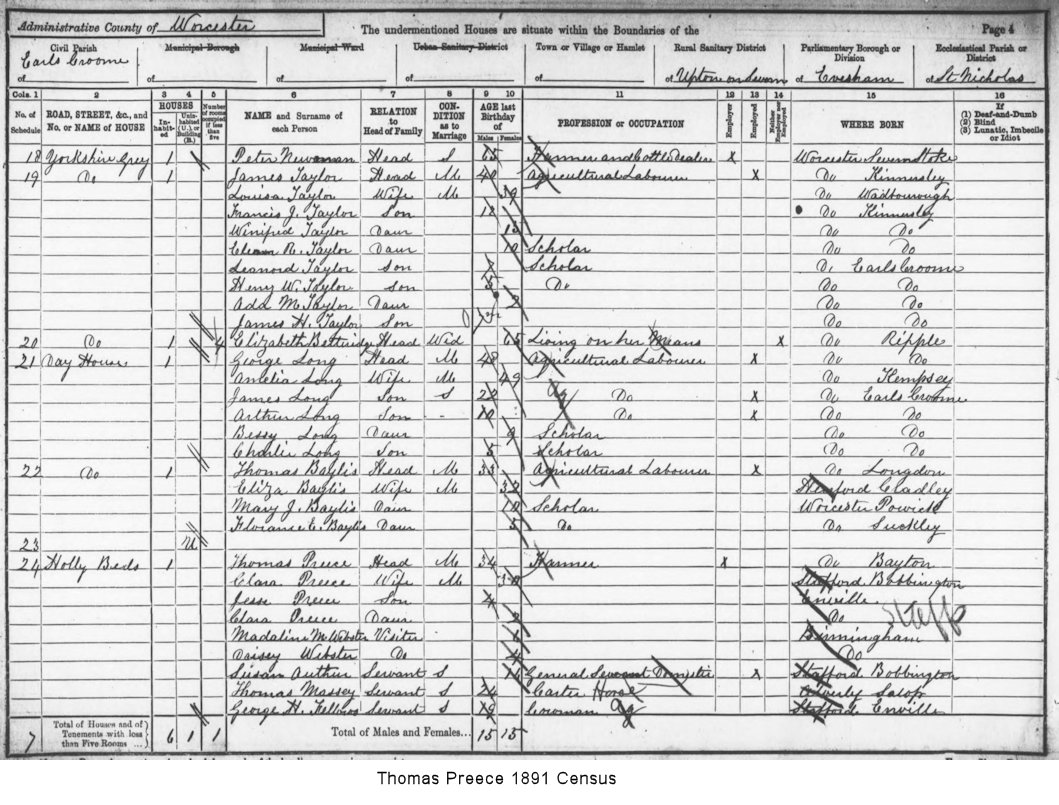 Administrative County of Worcester The undermentioned Houses are situate within the Boundaries of the Page 4
Civil Parish Municipal Borough Municipal Ward Urban Sanitary District Town or Village or Hamlet Rural Sanitary District Parliamentary Borough or Division Ecclesiastical Parish or District
of Earls Croome of of of of of Upton on Severn of Evesham of St Nicholas
Cols. 1 2 3 4 5 6 7 8 9 10 11 12 13 14 15 16
No. of Schedule ROAD, STREET, &c., and No. or NAME of HOUSE HOUSES In-habit-ed Unin-habited (U.), or Building (B.) Number of rooms occupied if less than five NAME and Surname of each Person RELATION to Head of Family CON-DITION as to Marriage AGE last Birthday of Males Females PROFESSION or OCCUPATION Employer Employed Neither Employer nor Employed WHERE BORN (1) Deaf-and-Dumb (2) Blind (3) Lunatic, Imbecile or Idiot
18 Yorkshire Grey 1 Peter Newman Head S 65 Farmer and Cattle Dealer X Worcester Severn Stoke
19 Do 1 James Taylor Head M 40 Agricultural Labourer X Do Kinnersley
Louisa Taylor Wife M 39 Do Wadborough
Francis J. Taylor Son 18 Do Kinnersley
Winifred Taylor Daur 13 Do Do
R. Taylor Daur 10 Scholar Do Do
Leanord Taylor Son 7 Scholar Do Earls Croome
Henry W. Taylor Son 5 Do Do Do
Ada M. Taylor Daur 2 Do Do
James H. Taylor Son Do Do
20 Do 1 4 Elizabeth Bettridge Head Wid 65 Living on her Means X Do Ripple
21 Day House 1 George Long Head M 48 Agricultural Labourer X Do Do
Amelia Long Wife M 49 Do Kempsey
James Long Son S 22 Ag Do X Do Earls Croome
Arthur Long Son Do X Do Do
Bessy Long Daur 9 Scholar Do Do
Charlie Long Son 5 Scholar Do Do
22 Do 1 Thomas Baylis Head M 33 Agricultural Labourer X Do Longdon
Eliza Baylis Wife M 32 Hereford Cradley
Mary J. Baylis Daur 10 Scholar Worcester Powick
Florance E. Baylis Daur 5 Do Do Suckley
23 U
24 Holly Beds 1 Thomas Preece Head M 34 Farmer X Do Bayton
Clara Preece Wife M Stafford Bobbington
Jesse Preece Son 4 Enville Staffs
Clara Preece Daur 2 Do
Madaline M Webster Visitor Birmingham
Daisey Webster Do 4 Do
Susan Servant S General Servant Domestic X Stafford Bobbington
Thomas Massey Servant S 24 Carter Horse Salop
George H. Servant S 19 Cowman Ag Stafford Enville
7 Total of Houses and of Tenements with less than Five Rooms ... 6 1 1 Total of Males and Females... 15 15
Thomas Preece 1891 Census